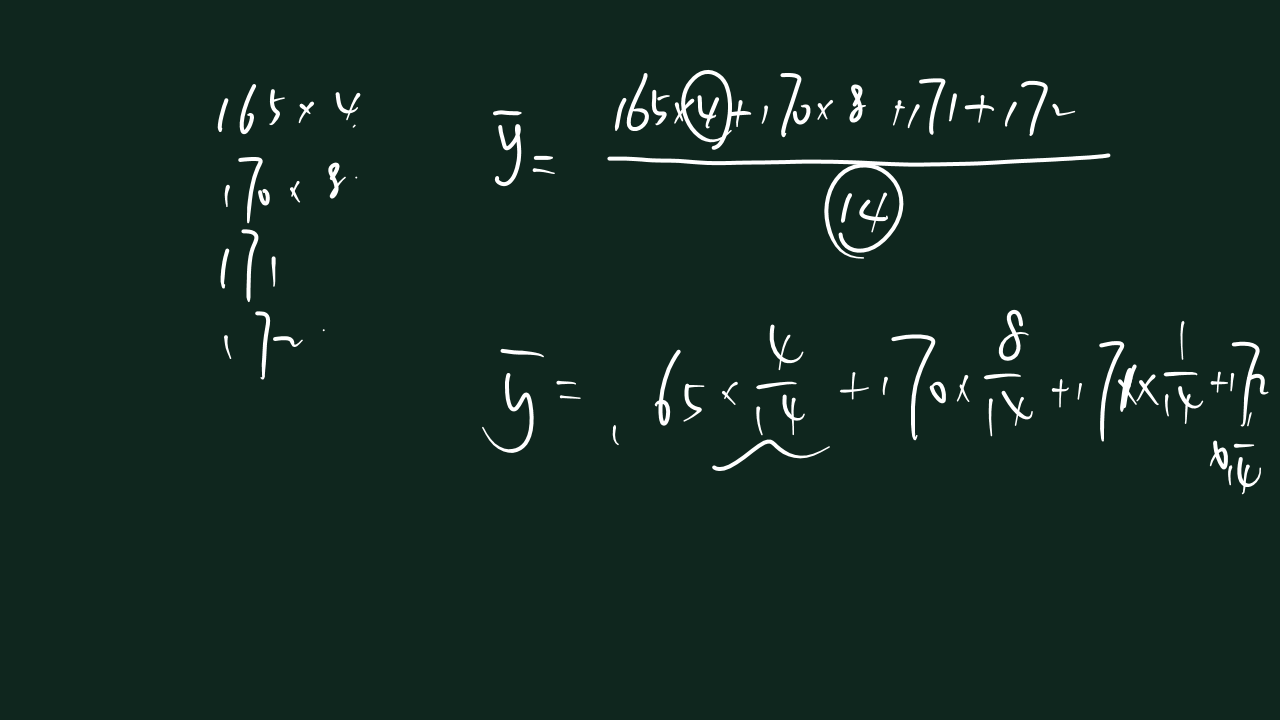 165 × 4
170 × 8
171
172
ȳ = (165×4 + 170×8 + 171 + 172) / 14
ȳ = 165 × 4/14 + 170 × 8/14 + 171 × 1/14 + 172 × 1/14